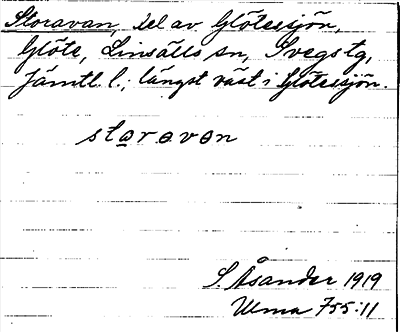 Storavan, del av Glötessjön,
Glöte, Linsälls sn, Svegs tg,
Jämtl. l.; längst väst i Glötessjön.
staravan
S. Åsander 1919
Ulma 755:11